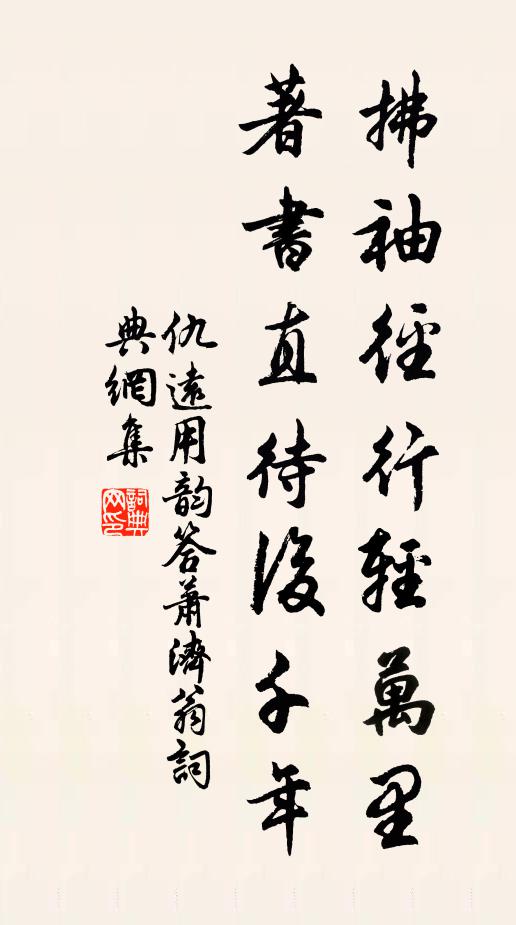 拂袖徑行輕萬里
著書直待後千年
仇遠用韵答蕭濟翁詞
典網集
詞典網印